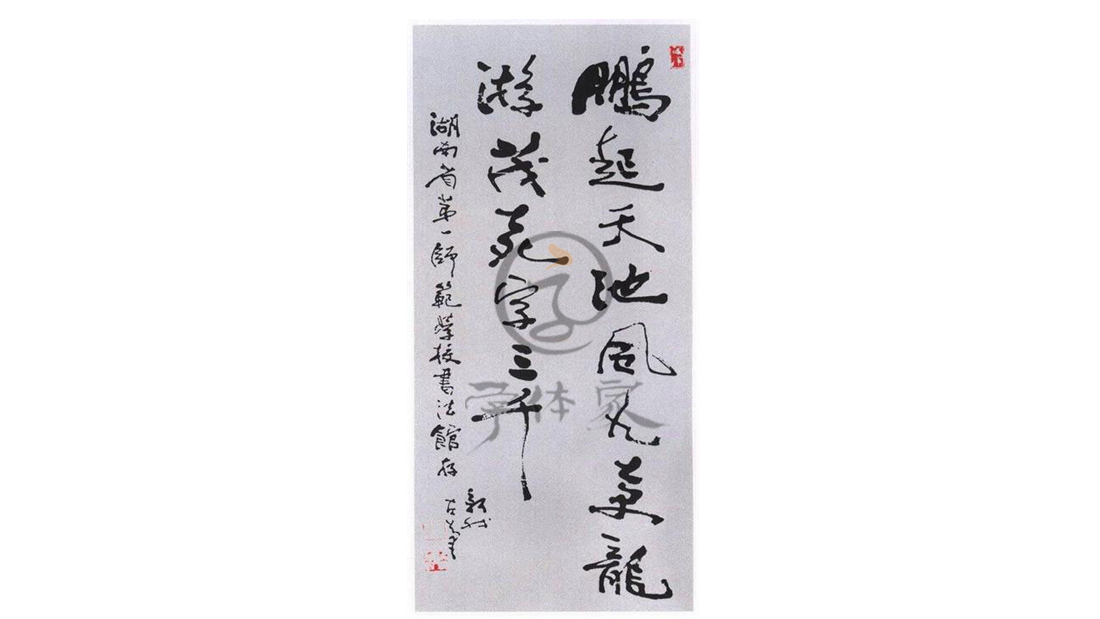 鵬起天池風九萬龍
游茂苑字三千
湖南省第一師範學校書法館存
字体家